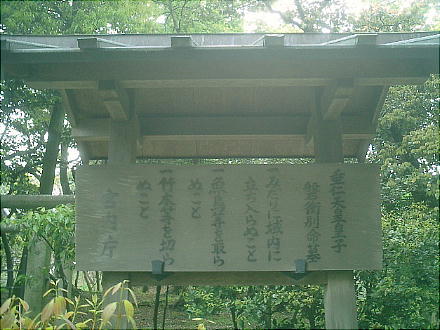 垂仁天皇皇子
磐衝別命墓
一みだりに域内に
立ち入らぬこと
一魚鳥等を取ら
ぬこと
一竹木等を切ら
ぬこと
宮内庁